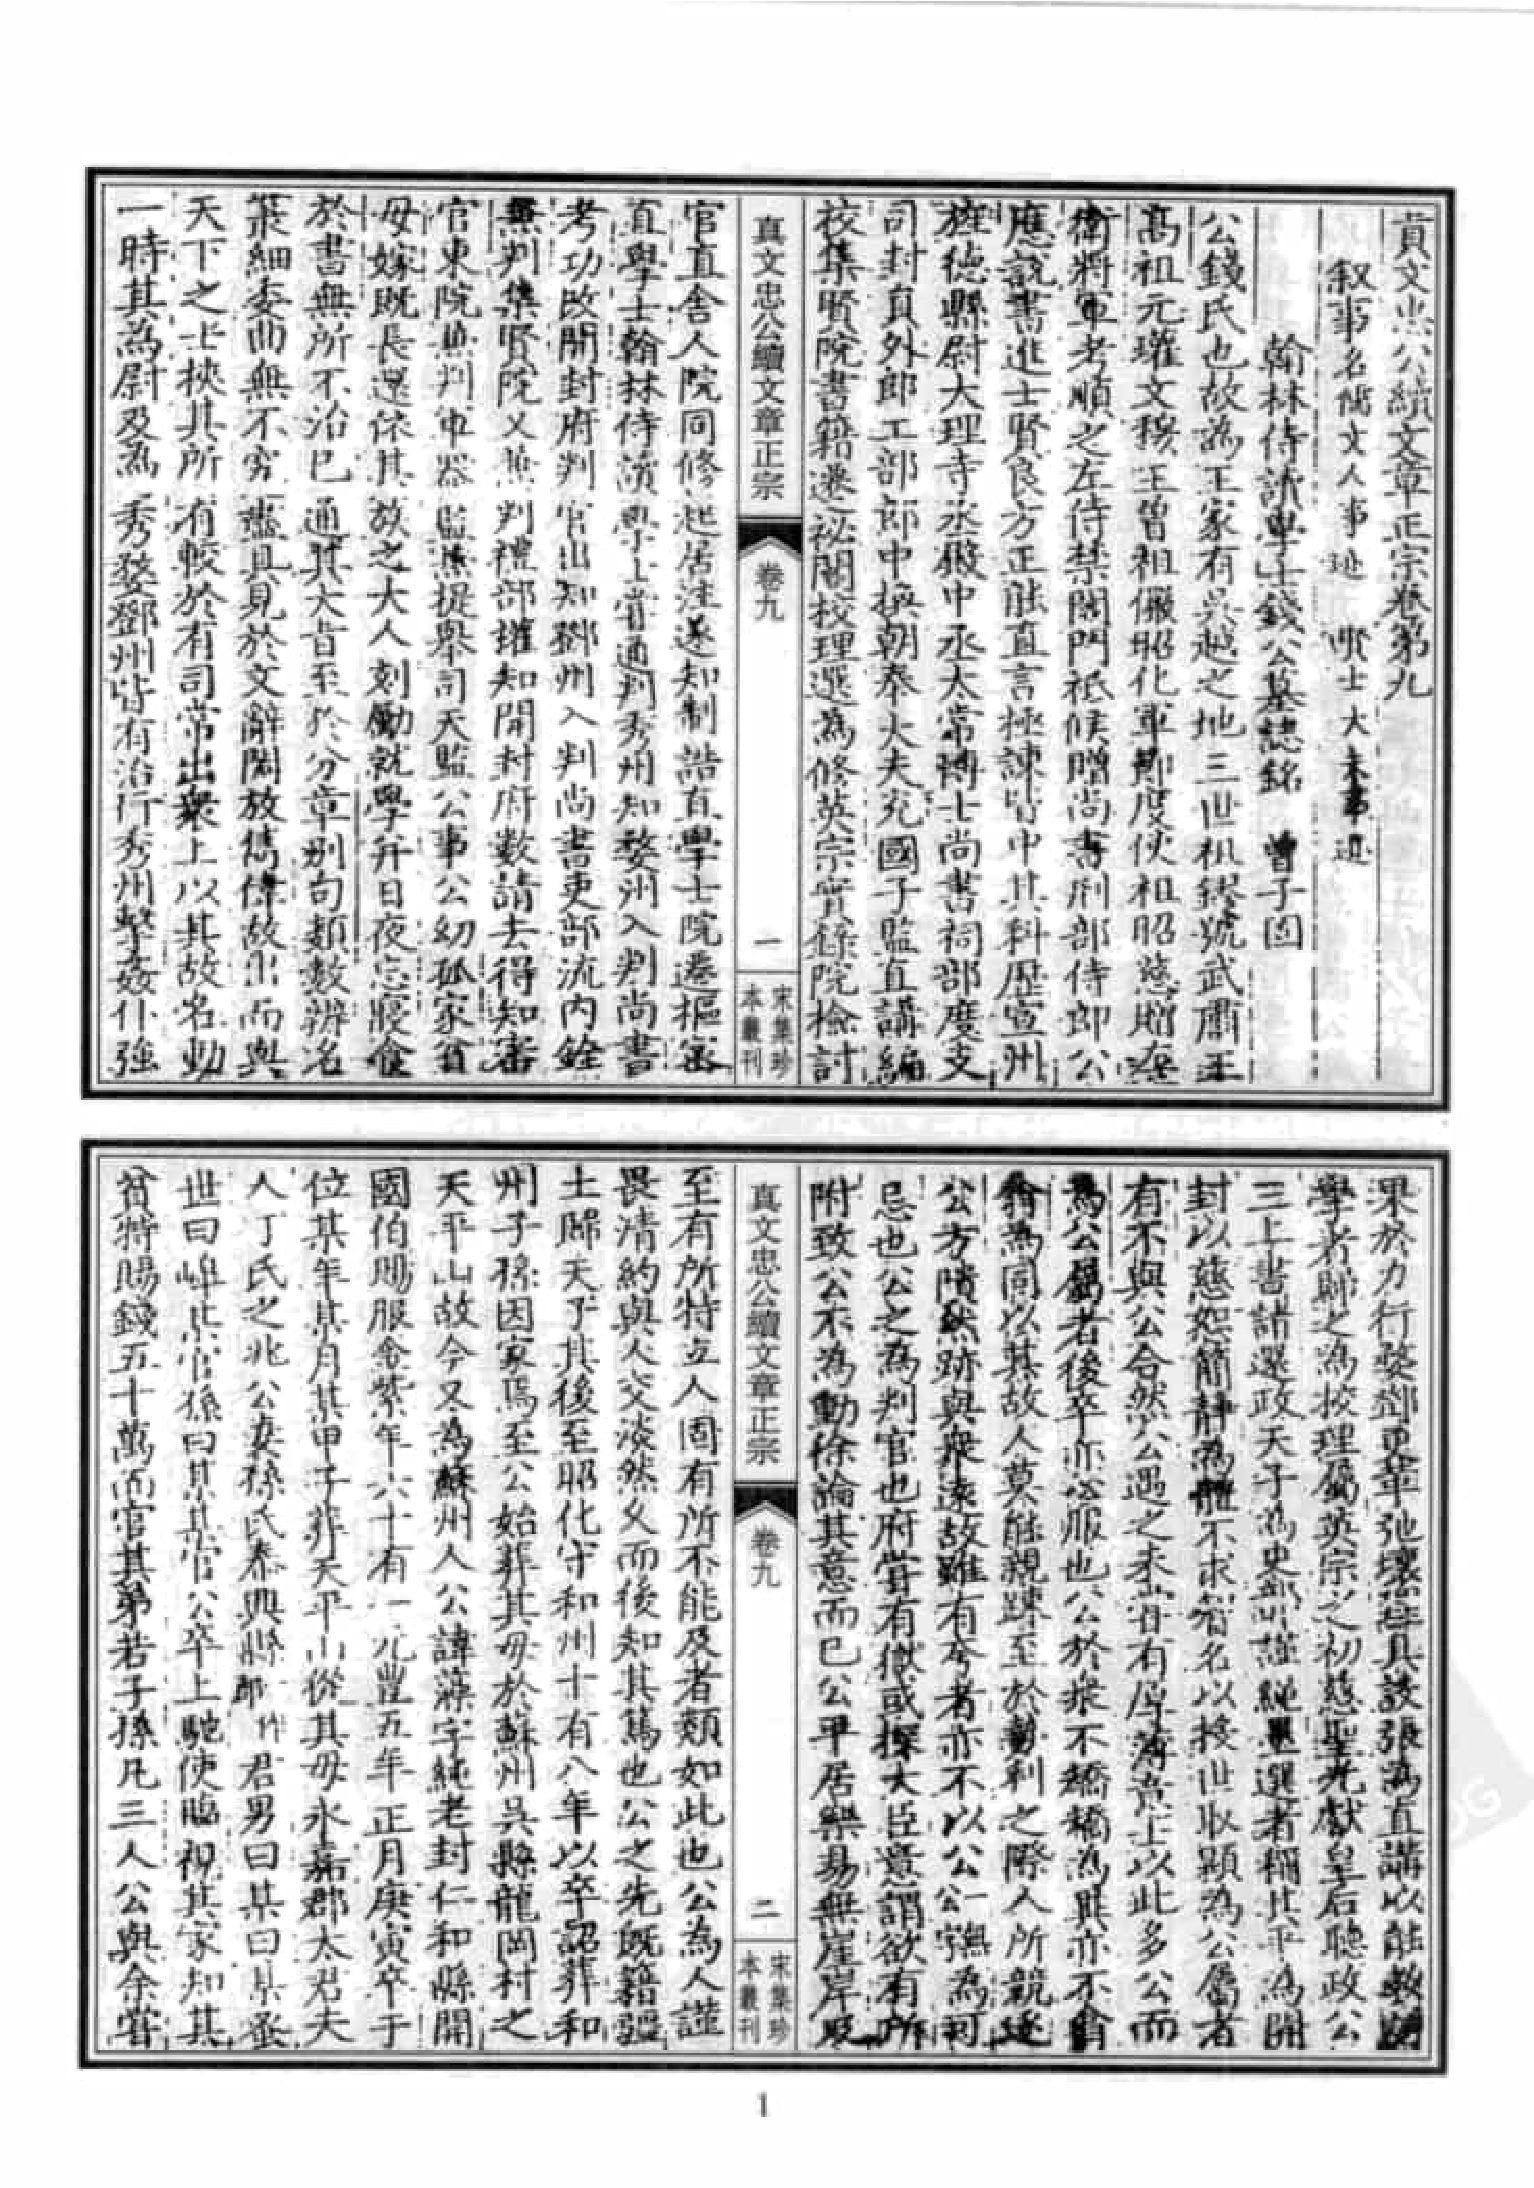 真文忠公續文章正宗卷第九
叙事名儒文人事迹 賢士大夫事迹
翰林侍讀學士錢公墓誌銘 曾子固
公錢氏也故為王家有吳越之地三世祖鏐號武肅王
高祖元瓘文穆王曾祖儼昭化軍節度使祖昭慈贈左
衛將軍考順之左侍禁閤門祗候贈尚書刑部侍郎公
應說書進士賢良方正能直言極諫皆中其科歷宣州
旌德縣尉大理寺丞殿中丞太常博士尚書祠部度支
司封員外郎工部郎中換朝奉大夫充國子監直講編
校集賢院書籍遷祕閣校理選為修英宗實錄院檢討
真文忠公續文章正宗
卷九
一
宋集珍
本叢刊
官直舍人院同修起居注遂知制誥直學士院遷樞密
直學士翰林侍讀學士嘗通判秀州知婺州入判尚書
考功改開封府判官出知鄧州入判尚書吏部流內銓
無判集賢院又無判禮部擢知開封府數請去得知審
官東院無判軍器監無提舉司天監公事公幼孤家貧
母嫁既長還依其族之大人刻勵就學并日夜忘寢食
於書無所不治已通其大旨至於分章別句類數辨名
纂細委曲無不究盡其見於文辭閎放雋偉故出而與
天下之士挾其所有較於有司常出衆上以其故名動
一時其為尉及為秀婺鄧州皆有治行秀州擊姦仆強
果於力行婺鄧更革弛壞葺具設張為直講以能教誨
學者歸之為校理屬英宗之初慈聖光獻皇后聽政公
三上書請還政天子為吏部謹繩墨選者稱其平為開
封以慈恕簡靜為體不求智名以投世取顯為公屬者
有不與公合然公遇之未嘗有厚薄意士以此多公而
為公屬者後卒亦心服也公於衆不矯矯為異亦不翕
翕為同以其故人莫能親踈至於勢利之際人所競逐
公方隤然跡與衆遠故雖有夸者亦不以公公一彊為可
忌也公之為判官也府嘗有獄或探大臣意謂欲有所
附致公不為動徐論其意而已公平居樂易無崖岸及
真文忠公續文章正宗
卷九
二
宋集珍
本叢刊
至有所特立人固有所不能及者類如此也公為人謹
畏清約與人交淡然义而後知其篤也公之先既籍疆
土歸天子其後至昭化守和州十有八年以卒詔葬和
州子孫因家焉至公始葬其母於蘇州吳縣龍岡村之
天平山故今又為蘇州人公諱藻字純老封仁和縣開
國伯賜服金紫年六十有一元豐五年正月庚寅卒于
位某年某月某甲子葬天平山從其母永嘉郡太君夫
人丁氏之兆公妻孫氏泰興縣郎作君男曰某曰某蚤
世曰嶂某官孫曰某某官公卒上馳使臨視其家知其
貧特賜錢五十萬而官其弟若子孫凡三人公與余嘗
1